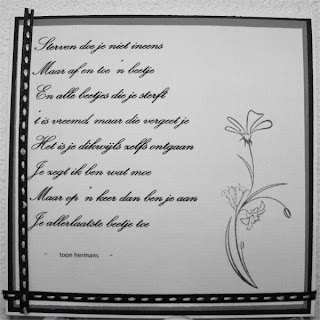 Sterven doe je niet ineens
Maar af en toe 'n beetje
En alle beetjes die je sterft
't is vreemd, maar die vergeet je
Het is je dikwijls zelfs ontgaan
Je zegt ik ben wat moe
Maar op 'n keer dan ben je aan
Je allerlaatste beetje toe
- toon hermans -